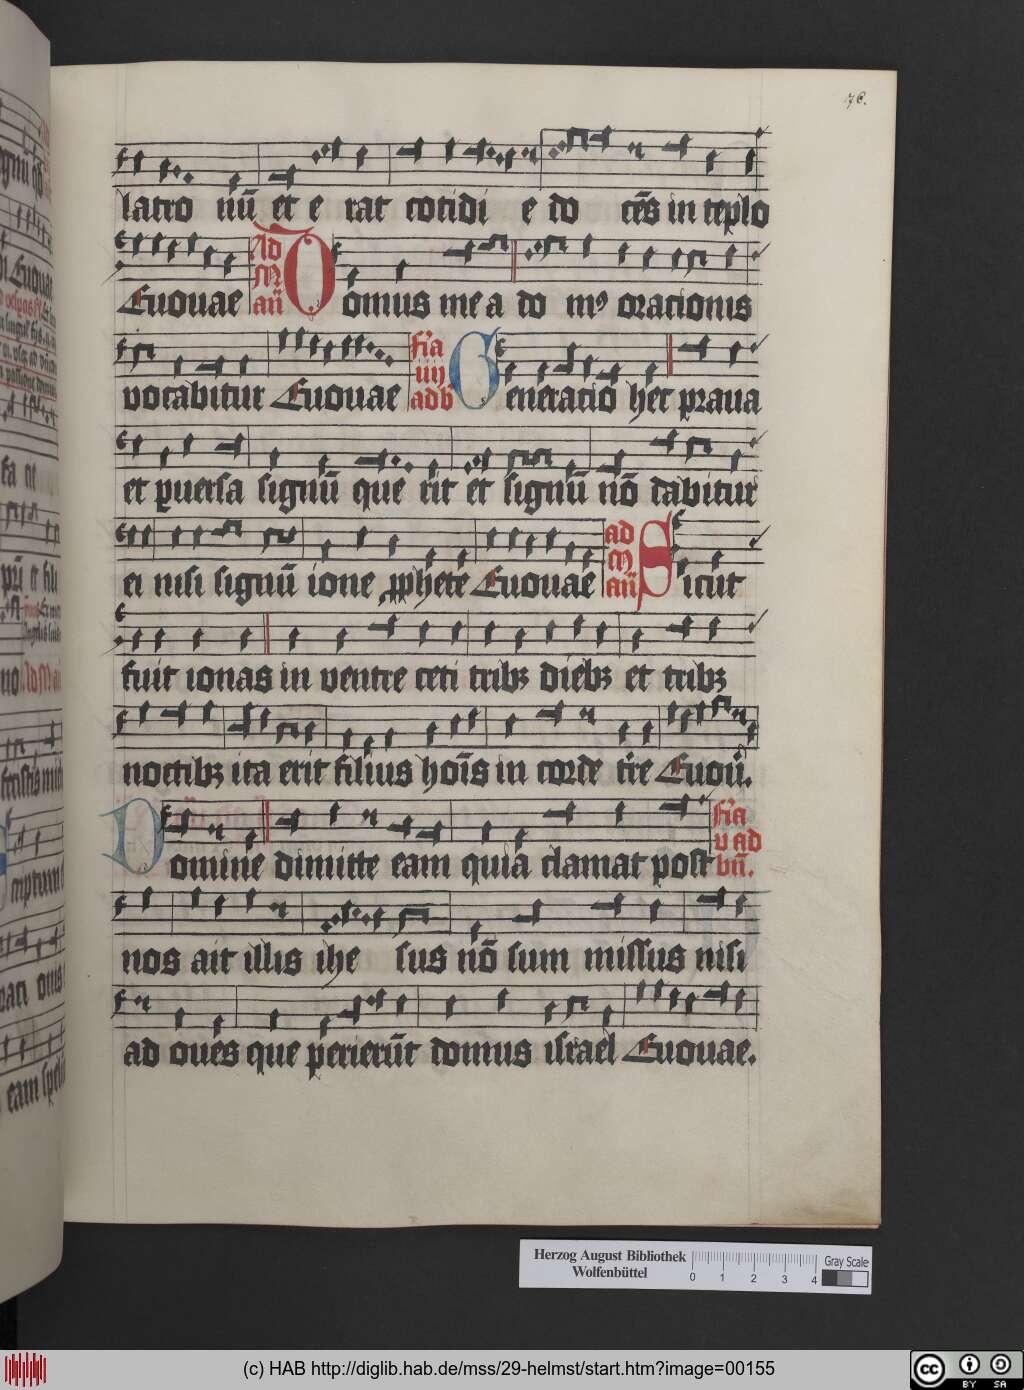 76.
latro nū et e rat cotidi e do cēs in tēplo
Euouae Ad M añ Domus me a do mꝰ orationis
vocabitur Euouae fr̄ia iiij ad b Generatio hec praua
et puersa signū que rit et signū nō dabitur
ei nisi signū ione pphete Euouae ad M añ Sicut
fuit ionas in ventre ceti tribꝫ diebꝫ et tribꝫ
noctibꝫ ita erit filius hoīs in corde tr̄e Euoū.
Domine dimitte eam quia clamat post fr̄ia v ad bn̄.
nos ait illis ihe sus nō sum missus nisi
ad oues que perierūt domus israel Euouae.
Herzog August Bibliothek
Wolfenbüttel
0 1 2 3 4
Gray Scale
(c) HAB http://diglib.hab.de/mss/29-helmst/start.htm?image=00155
cc BY SA